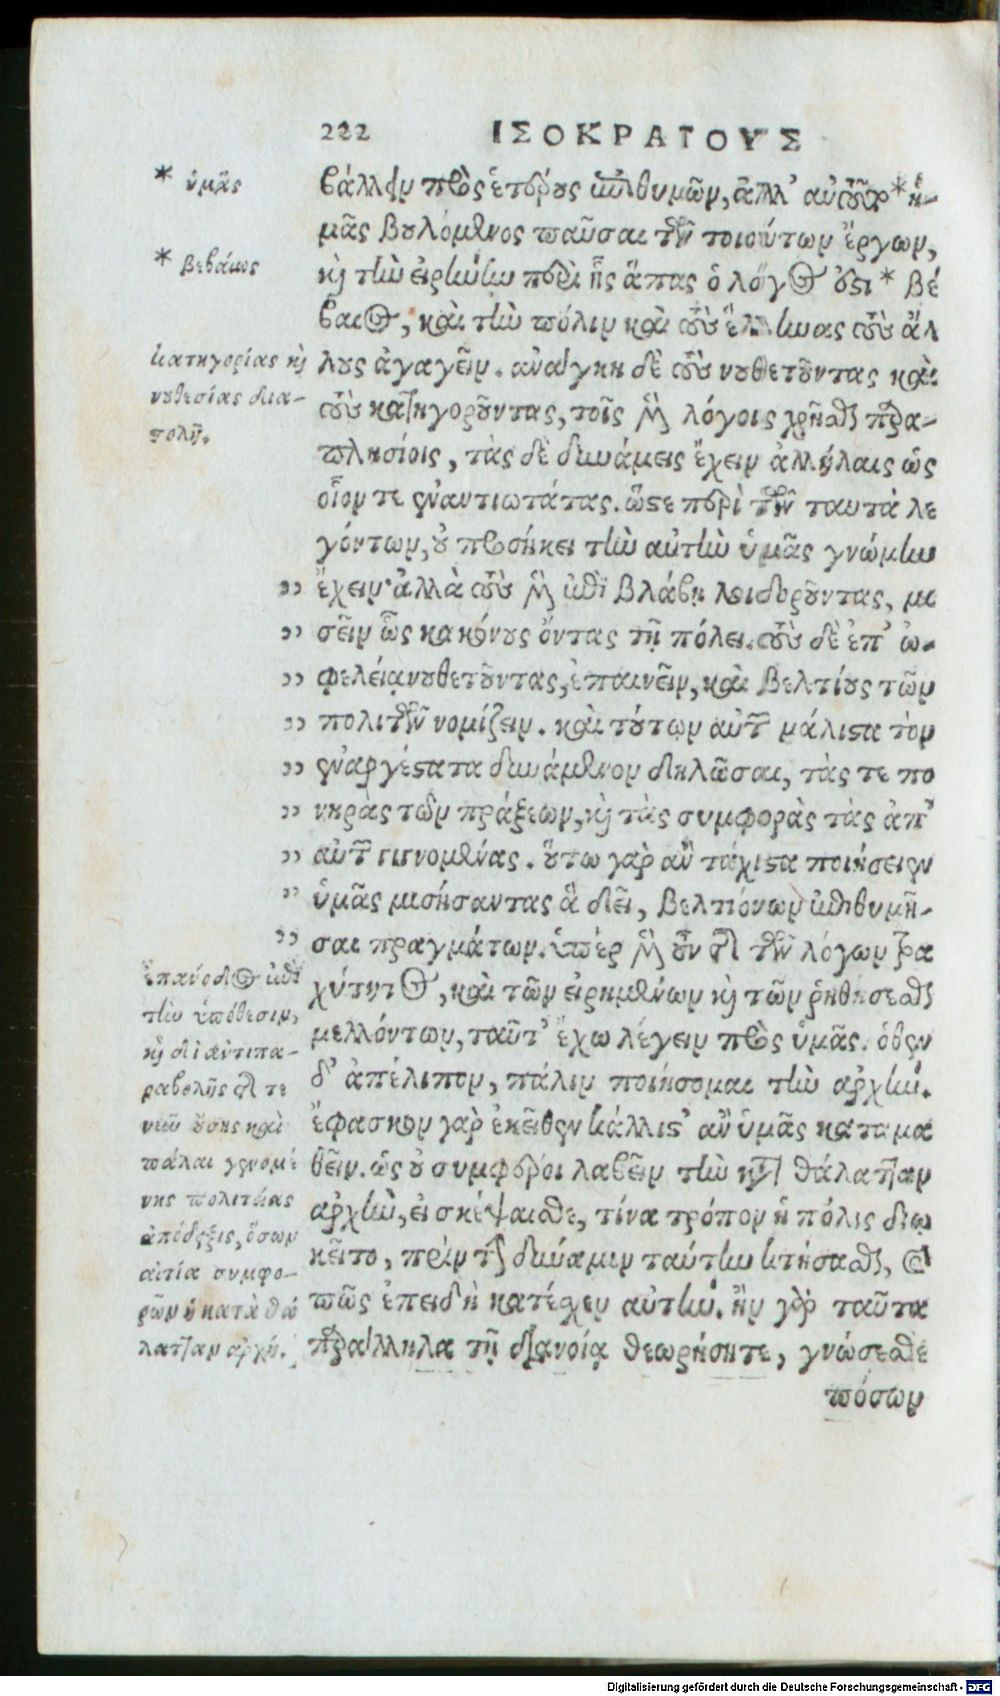 222 ΙΣΟΚΡΑΤΟΥΣ
* ὑμᾶς
* βεβαίως
κατηγορίας καὶ
νουθεσίας δια-
στολή.
βάλλειν πρὸς ἑτέρους ἐπιθυμῶν, ἀλλ' αὐτοὺς * ἡ-
μᾶς βουλόμενος παῦσαι τῶν τοιούτων ἔργων,
καὶ τὴν εἰρήνην περὶ ἧς ἅπας ὁ λόγος ἐστι * βέ
βαιος, καὶ τὴν πόλιν καὶ τοὺς ἕλληνας τοὺς ἄλ
λους ἀγαγεῖν. ἀνάγκη δὲ τοὺς νουθετοῦντας καὶ
τοὺς κατηγοροῦντας, τοῖς μὲν λόγοις χρῆσθαι παρα-
πλησίοις, τὰς δὲ δυνάμεις ἔχειν ἀλλήλαις ὡς
οἷόν τε ἐναντιωτάτας. ὥστε περὶ τῶν ταυτὰ λε
γόντων, οὐ προσήκει τὴν αὐτὴν ὑμᾶς γνώμην
„ ἔχειν· ἀλλὰ τοὺς μὲν ἐπὶ βλάβῃ λοιδοροῦντας, μι
„ σεῖν ὡς κακόνους ὄντας τῇ πόλει. τοὺς δὲ ἐπ' ὠ-
„ φελείᾳ νουθετοῦντας, ἐπαινεῖν, καὶ βελτίους τῶν
„ πολιτῶν νομίζειν. καὶ τούτων αὐτῶν μάλιστα τὸν
„ ἐναργέστατα δυνάμενον δηλῶσαι, τάς τε πο
„ νηρὰς τῶν πράξεων, καὶ τὰς συμφορὰς τὰς ἀπ'
„ αὐτῶν γιγνομένας. οὕτω γὰρ ἂν τάχιστα ποιήσειεν
„ ὑμᾶς μισήσαντας ἃ δεῖ, βελτιόνων ἐπιθυμῆ-
„ σαι πραγμάτων. ὑπὲρ μὲν οὖν τῆς τῶν λόγων τρα
χύτητος, καὶ τῶν εἰρημένων καὶ τῶν ῥηθήσεσθαι
μελλόντων, ταῦτ' ἔχω λέγειν πρὸς ὑμᾶς. ὅθεν
δ' ἀπέλιπον, πάλιν ποιήσομαι τὴν ἀρχήν.
ἔφασκον γὰρ ἐκεῖθεν κάλλιστ' ἂν ὑμᾶς καταμα
θεῖν. ὡς οὐ συμφέροι λαβεῖν τὴν κατὰ θάλατταν
ἀρχὴν, εἰ σκέψαισθε, τίνα τρόπον ἡ πόλις διῳ
κεῖτο, πρὶν τὴν δύναμιν ταύτην κτήσασθαι, καὶ
πῶς ἐπειδὴ κατέσχεν αὐτήν. ἢν γὰρ ταῦτα
παράλληλα τῇ διανοίᾳ θεωρήσητε, γνώσεσθε
πόσων
ἐπάνοδος ἐπὶ
τὴν ὑπόθεσιν,
καὶ δι' ἀντιπα-
ραβολῆς τῆς τε
νῦν οὔσης καὶ
πάλαι γενομέ
νης πολιτείας
ἀπόδειξις, ὅσων
αἰτία συμφο-
ρῶν ἡ κατὰ θά
λατταν ἀρχή.
Digitalisierung gefördert durch die Deutsche Forschungsgemeinschaft - DFG